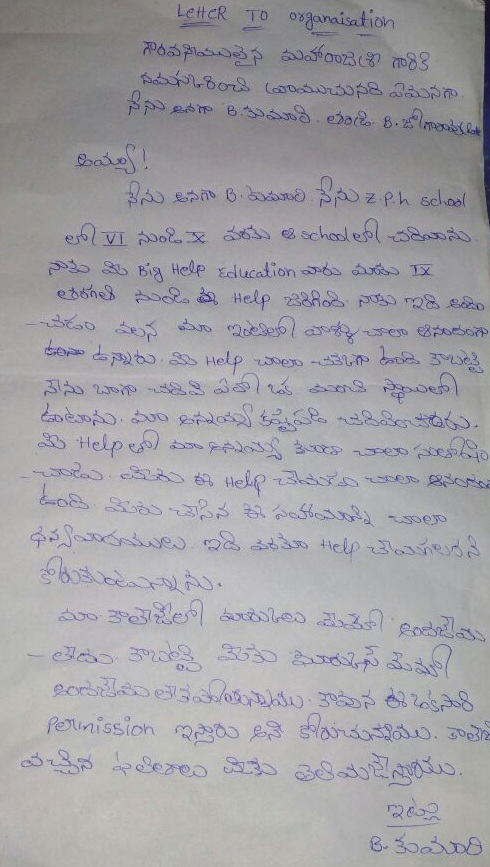 Letter To organaisation
గౌరవనీయులైన మహారాజశ్రీ గారికి
నమస్కరించి వ్రాయునది ఏమనగా.
నేను అనగా B. కుమారి. తండ్రి. B.
అయ్యా!
నేను అనగా B. కుమారి. నేను Z.P.h school
లో VI నుండి X వరకు ఆ schoolలో చదివాను.
నాకు మీ Big Help Education వారు మాకు IX
తరగతి నుండి ఈ Help జరిగింది. నాకు ఇది
- చడం వలన మా ఇంటిలో వాళ్ళు చాలా ఆనందంగా
ఉన్నారు. మీ Help చాలా చక్కగా ఉంది కాబట్టి
నేను బాగా చదివి ఏదో ఒక మంచి స్థాయిలో
ఉంటాను. మా అన్నయ్య కష్టపడి చదివించాడు.
మీ Help తో మా అన్నయ్య కూడా చాలా సంతోషిం
- చాడు. మీరు ఈ Help చేయడం చాలా ఆనందంగా
ఉంది. మీరు చేసిన ఈ సహాయాన్ని చాలా
ధన్యవాదములు. ఇదే విధంగా Help చేయగలరని
కోరుకుంటున్నాను.
మా కాలేజీలో మార్కులు మెమో అందజేయ
- లేదు. కాబట్టి మీకు మార్క్స్ మెమో
అందజేయలేకపోతున్నాము. కావున ఈ ఒక్కసారి
Permission ఇస్తారు అని కోరుచున్నాము. కాలేజీ
వచ్చిన ఫలితాలు మీకు తెలియజేస్తాము.
ఇట్లు
B. కుమారి